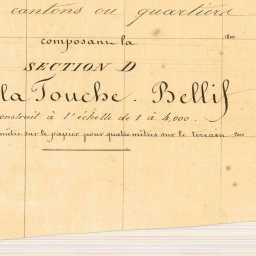 cantons ou quartiers
composant la
SECTION D
la Touche. Bellif
construit à l'échelle de 1 à 4,000.
mètre sur le papier pour quatre mètres sur le terrain